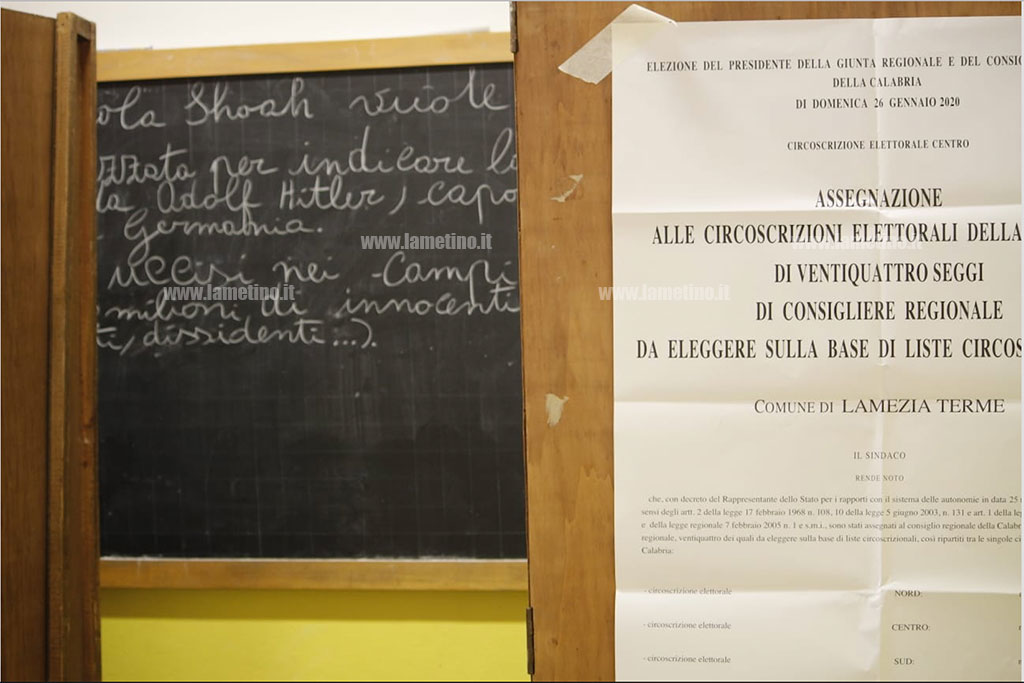 ola Shoah vuole
zzata per indicare l
la Adolf Hitler, capo
Germania.
uccisi nei Campi
milioni di innocenti
ti, dissidenti...).
www.lametino.it
www.lametino.it
ELEZIONE DEL PRESIDENTE DELLA GIUNTA REGIONALE E DEL CONSIG
DELLA CALABRIA
DI DOMENICA 26 GENNAIO 2020
CIRCOSCRIZIONE ELETTORALE CENTRO
ASSEGNAZIONE
ALLE CIRCOSCRIZIONI ELETTORALI DELLA
www.lametino.it
DI VENTIQUATTRO SEGGI
www.lametino.it
DI CONSIGLIERE REGIONALE
DA ELEGGERE SULLA BASE DI LISTE CIRCOS
COMUNE DI LAMEZIA TERME
IL SINDACO
RENDE NOTO
che, con decreto del Rappresentante dello Stato per i rapporti con il sistema delle autonomie in data 25
sensi degli artt. 2 della legge 17 febbraio 1968 n. 108, 10 della legge 5 giugno 2003, n. 131 e art. 1 della leg
e della legge regionale 7 febbraio 2005 n. 1 e s.m.i., sono stati assegnati al consiglio regionale della Calabr
regionale, ventiquattro dei quali da eleggere sulla base di liste circoscrizionali, così ripartiti tra le singole ci
Calabria:
- circoscrizione elettorale NORD:
- circoscrizione elettorale CENTRO:
- circoscrizione elettorale SUD: